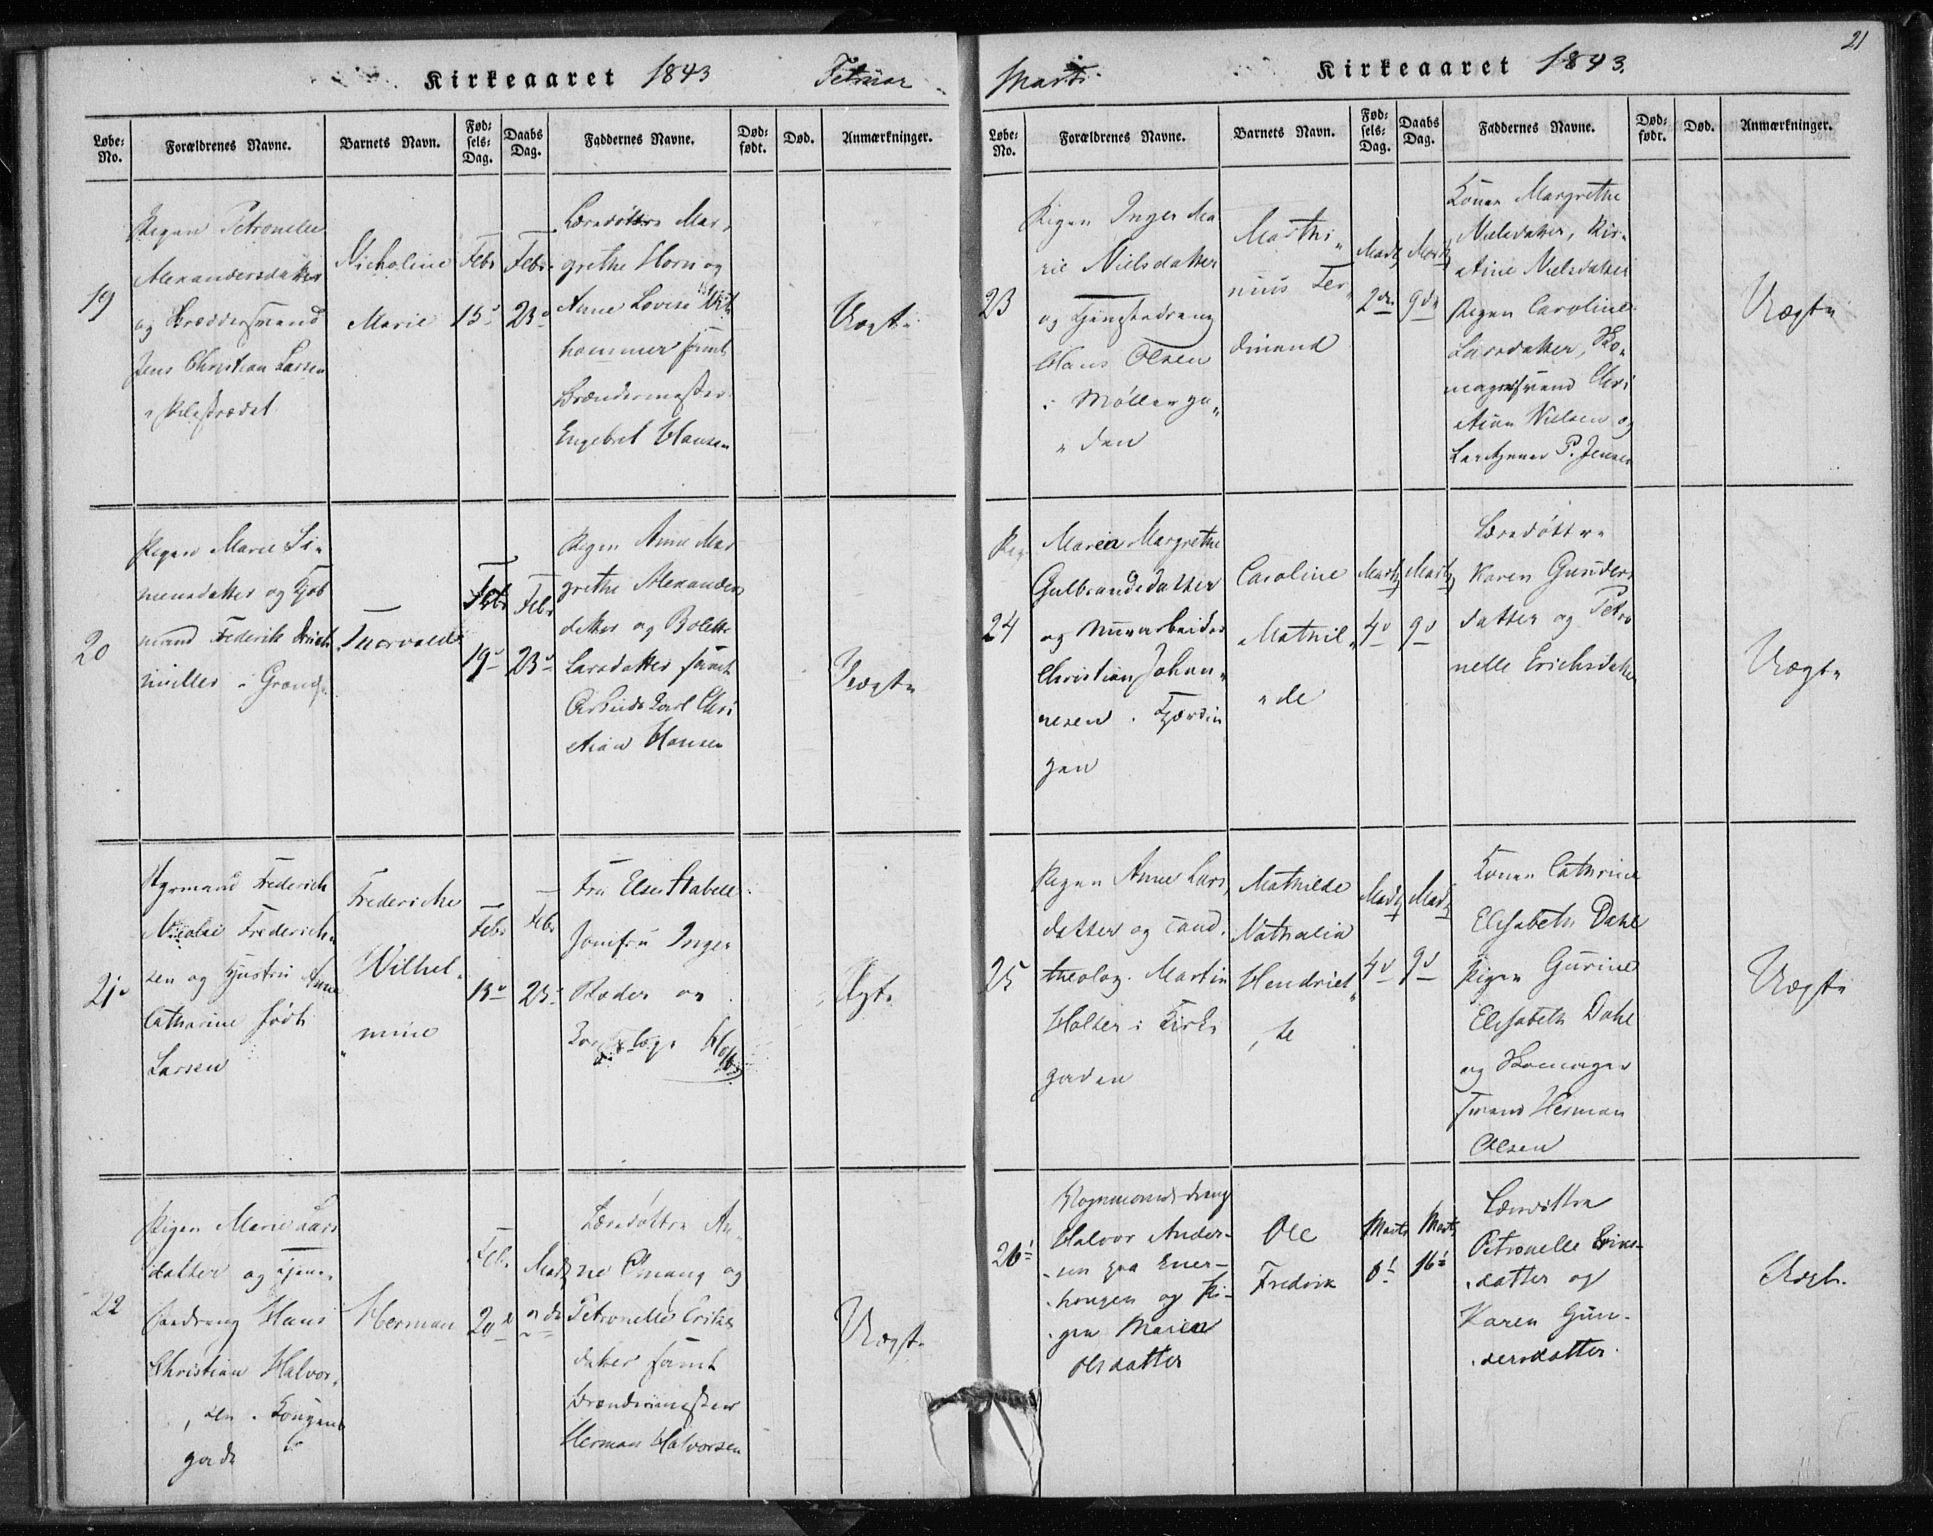 Kirkeaaret 1843 Februar
Løbe-No. Forældrenes Navne. Barnets Navn. Fødsels-Dag. Daabs Dag. Faddernes Navne. Død-født. Død. Anmærkninger.
19
Pigen Petronelle
Alexandersdatter
og Snedkersvend
Jens Christian Larsen
i Pilestrædet
Nicholine
Marie
Febr
15
Febr
23
Mar,
grethe Horn og
Anne Lovise
hammer samt
Brændemester
Engebret Hansen
Uægte
20
Pigen Marie Si-
mensdatter og
mand Frederik
müller i Grænd
Thorvald
Febr
19
Febr
23
Pigen Anne Mar
grethe Alexanders
datter og Bolette
Larsdatter samt
Carl Chri
stian Hansen
Uægte
21
Styrmand Frederich
Nicolai Frederich
sen og Hustru Anne
Catharine født
Larsen
Frederiche
Wilhel-
mine
Febr
Febr
Fru Elsen Stabell
Jomfru Inger
Røder og
Ægte
22
Pigen Marie Lars
datter og Tjene-
stedreng Hans
Christian Halvor-
sen i Kongens
gade
Herman
Febr
20
Martz
2de
An-
ne Omang og
Petronelle Eriks
datter samt
Brændemester
Herman Halvorsen
Uægte
Marts Kirkeaaret 1843. 21
Løbe-No. Forældrenes Navne. Barnets Navn. Fødsels-Dag. Daabs Dag. Faddernes Navne. Død-født. Død. Anmærkninger.
23
Pigen Inger Ma
rie Nielsdatter
og Tjenestedreng
Hans Olsen
i Møllerga-
den
Marthi-
nius Fer-
dinand
Martz
2de
Martz
9de
Konen Margrethe
Nielsdatter, Kir-
stine Nielsdatter
Pigen Caroline
Larsdatter, Sko-
magersvend Chri
stian Nielsen og
P. Jensen
Uægte
24
Pig
Maren Margrethe
Gulbrandsdatter
og Murarbeider
Christian Johan-
nesen i Fjerdin
gen
Caroline
Mathil-
de
Martz
4
Martz
9
Karen Gunders
datter og Petro
nelle Erichsdatter
Uægte
25
Pigen Anne Lars,
datter og cand.
theolog. Martin
Holter i Kirke
gaden
Mathilde
Nathalia
Hendriet-
te
Martz
4
Martz
9
Konen Cathrine
Elisabeth Dahl
Pigen Gurine
Elisabeth Dahl
og Skomager
svend Herman
Olsen
Uægte
26
Vognmandsdreng
Halvor Ander-
sen paa Ener-
hougen og Pi-
gen Maren
Olsdatter
Ole
Fredrik
Marts
Marts
16
Petronelle Eriks-
datter og
Karen Gun-
dersdatter.
Uægte